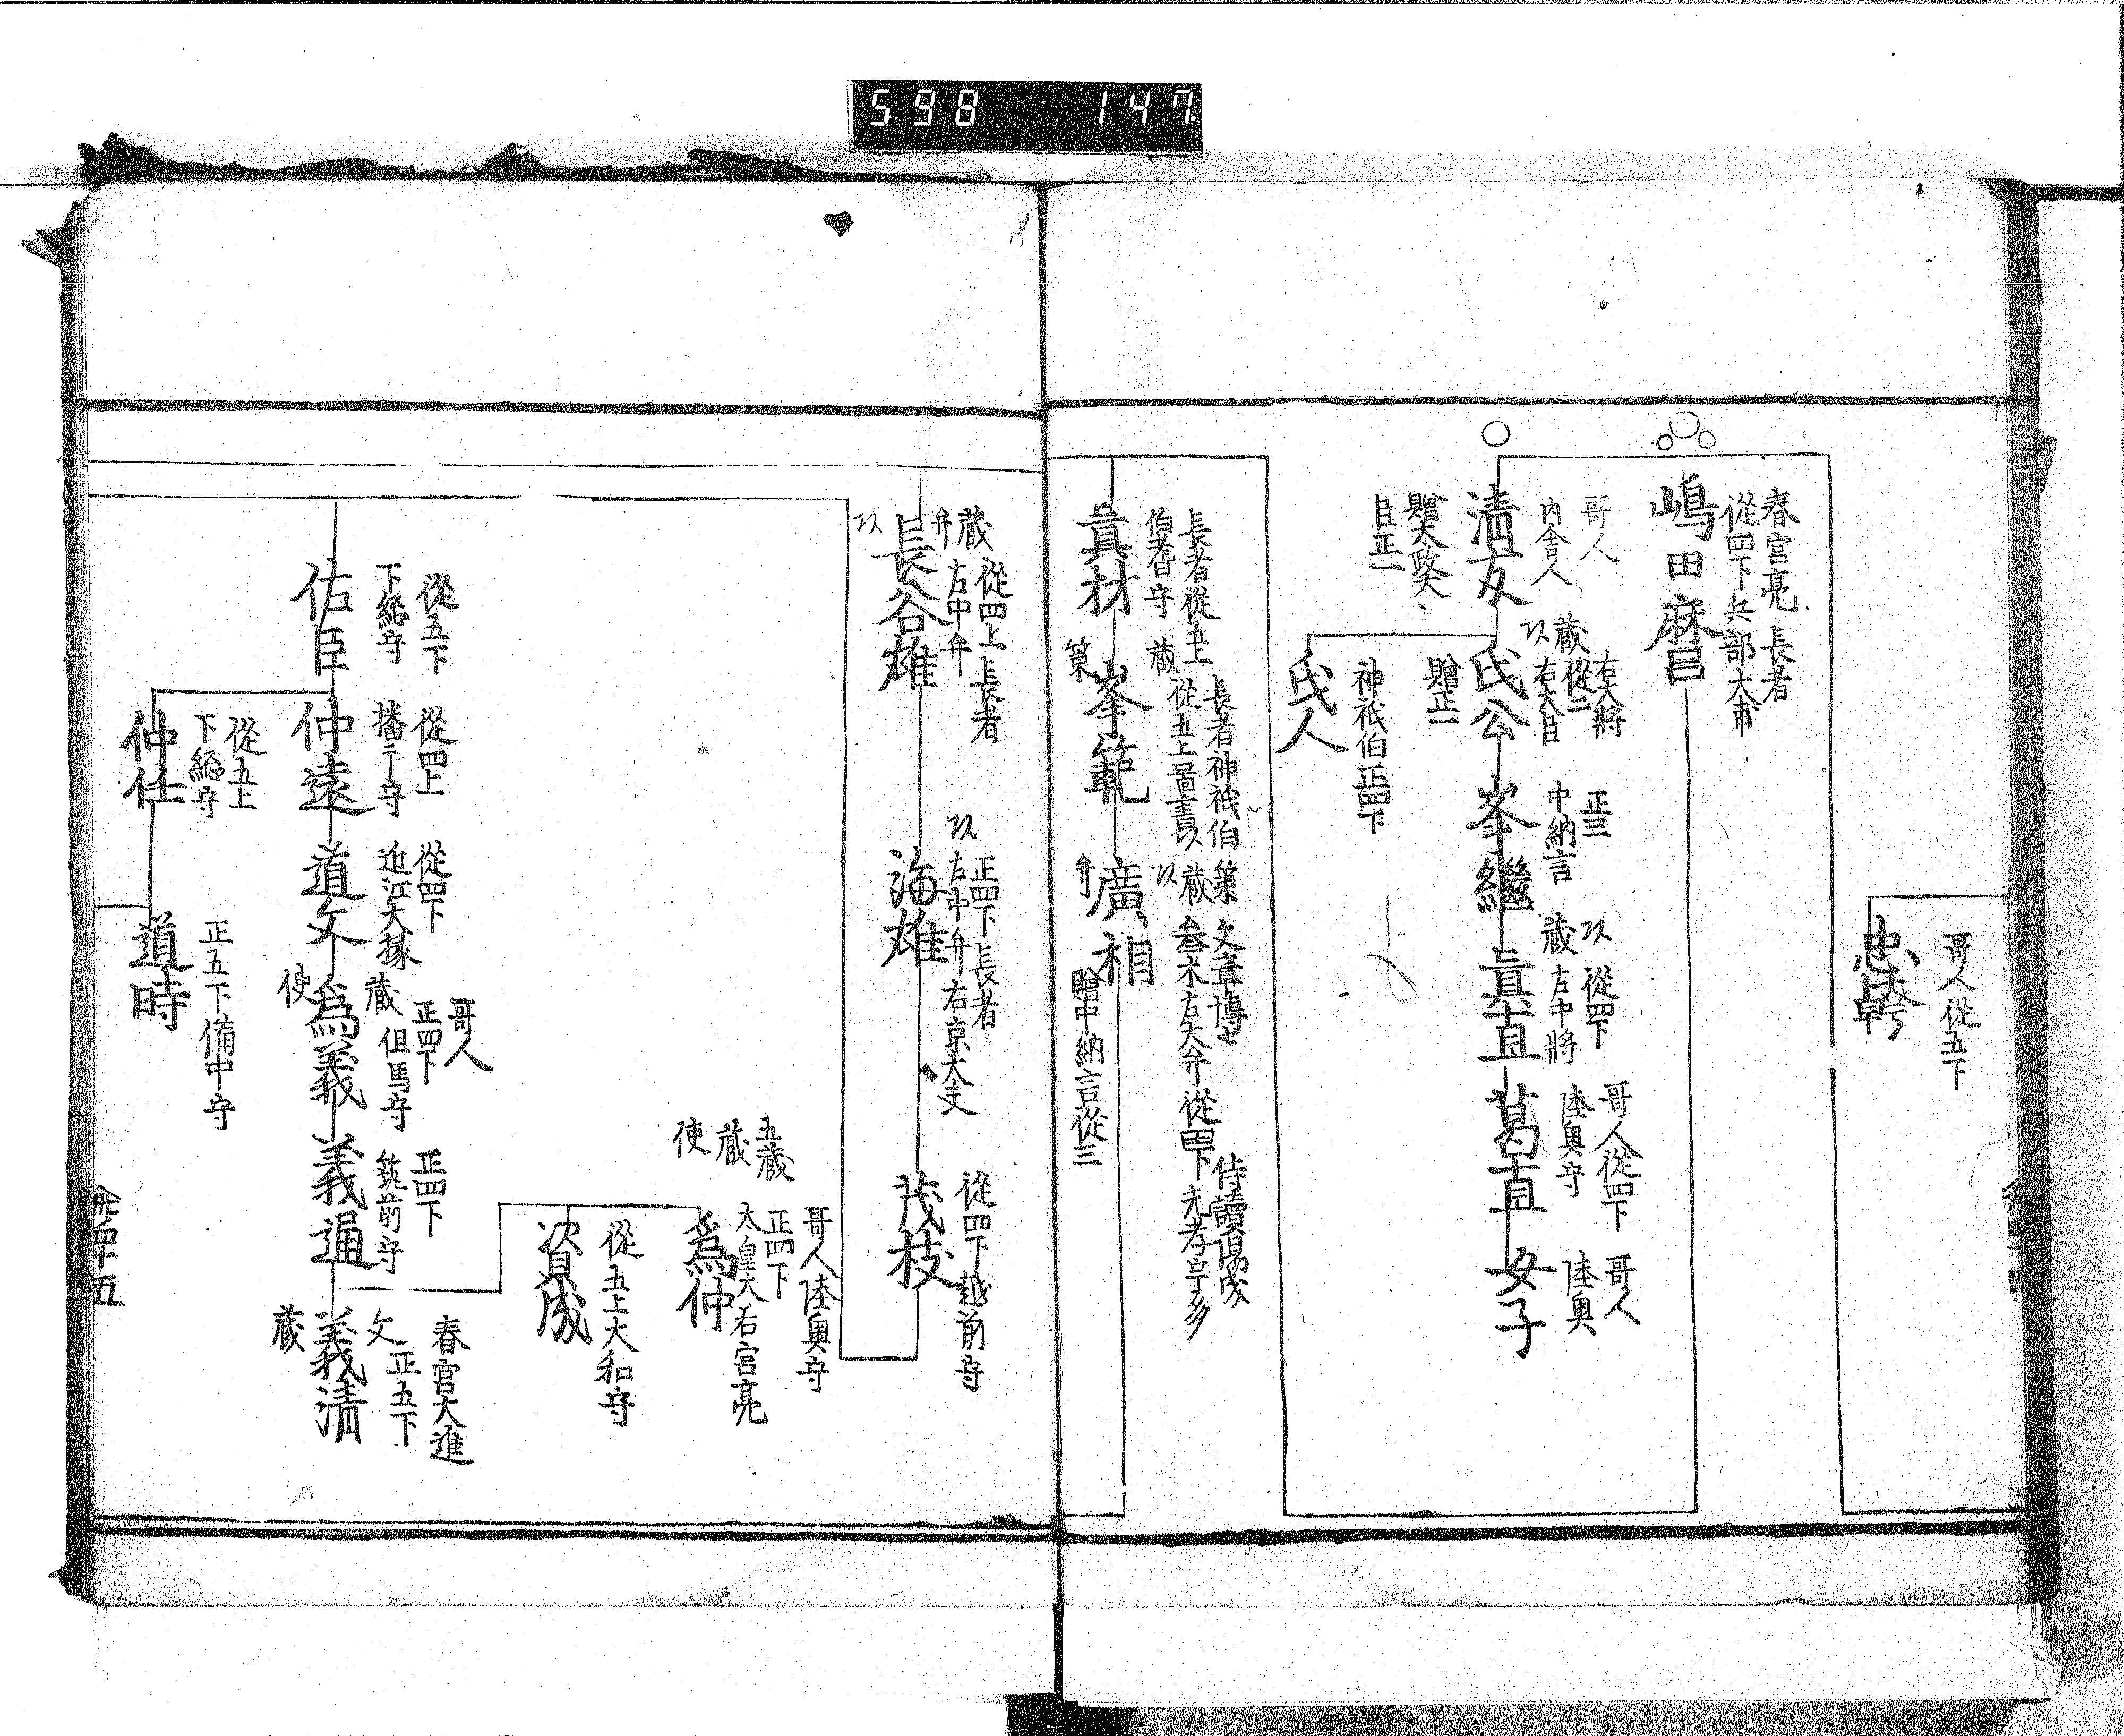 598 147
哥人從五下
忠幹
春宮亮 長者
從四下兵部大甫
嶋田麿
哥人
内舎人
清友
贈太政大
臣正一
右大將
藏從二
以右大臣
氏公
贈正一
正三
中納言
峯繼
以從四下
藏左中將
眞直
哥人從四下
陸奥守
葛直
哥人
陸奥
女子
神祇伯正四下
氏人
長者從五上
伯耆守
眞材
長者神祇伯
藏從五上圖書以
峯範
策
策文章博士
以藏叅木左大弁從四下光孝宇多
侍讀陽成
廣相
弁
贈中納言從三
藏從四上長者
弁左中弁
長谷雄
以
正四下長者
以左中弁右京大夫
海雄
從四下越前守
茂枝
從五下
下総守
佐臣
從四上
播广守
仲遠
從四下
近江大掾
道文
哥人
正四下
藏但馬守
爲義
使
正四下
筑前守
義通
五藏
藏
使
哥人陸奥守
正四下
太皇大右宮亮
爲仲
從五上大和守
資成
春宮大進
文正五下
義清
藏
從五上
下総守
仲任
正五下備中守
道時
四十五